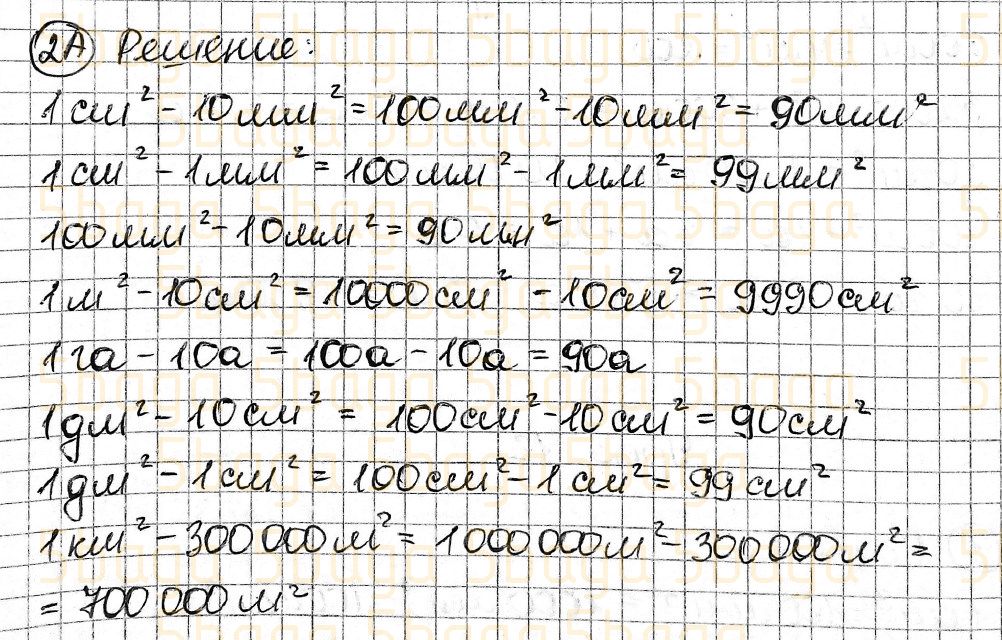 2А Решение:
1 см² - 10 мм² = 100 мм² - 10 мм² = 90 мм²
1 см² - 1 мм² = 100 мм² - 1 мм² = 99 мм²
100 мм² - 10 мм² = 90 мм²
1 м² - 10 см² = 10000 см² - 10 см² = 9990 см²
1 га - 10а = 100а - 10а = 90а
1 дм² - 10 см² = 100 см² - 10 см² = 90 см²
1 дм² - 1 см² = 100 см² - 1 см² = 99 см²
1 км² - 300 000 м² = 1 000 000 м² - 300 000 м² =
= 700 000 м²